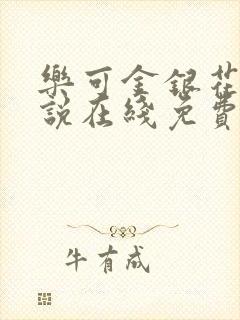 樂可金銀花
說在綫免費
牛有成